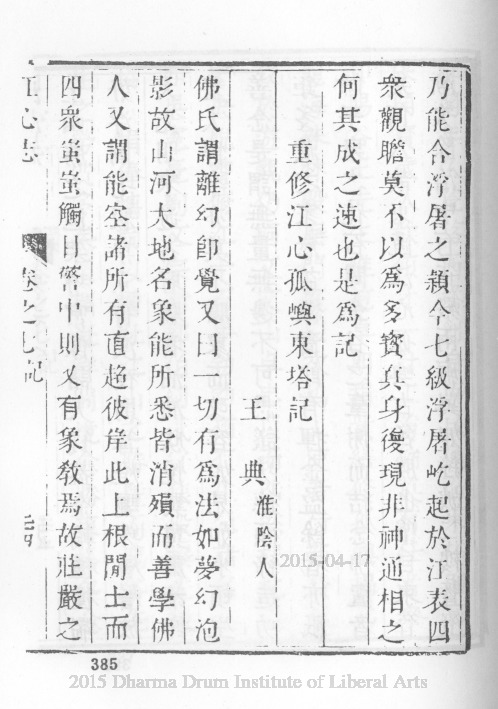 乃能合浮屠之穎今七級浮屠屹起於江表四
衆觀瞻莫不以爲多寳真身復現非神通相之
何其成之速也是爲記
重修江心孤嶼東塔記
王典淮陰人
佛氏謂離幻卽覺又曰一切有爲法如夢幻泡
影故山河大地名象能所悉皆消殞而善學佛
人又謂能空諸所有直超彼岸此上根閒士而
四衆蚩蚩觸目警中則又有象敎焉故莊嚴之
江心志 卷之七記
385
2015-04-17
2015 Dharma Drum Institute of Liberal Arts